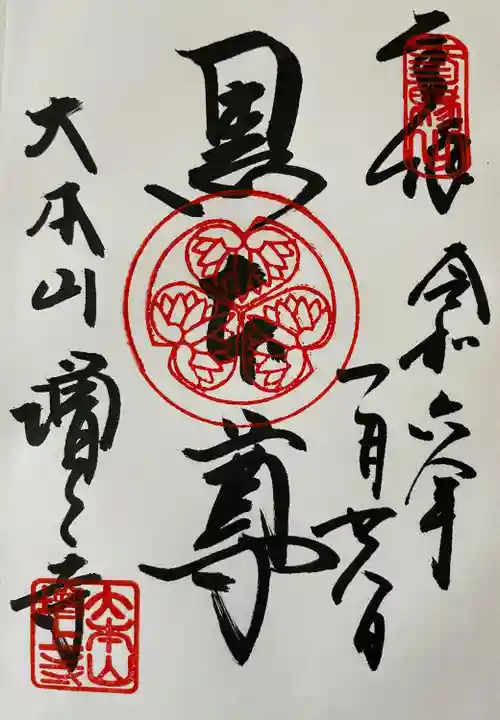 令和六年
一月廿八日
黒本尊
大本山増上寺
大本山
増上寺